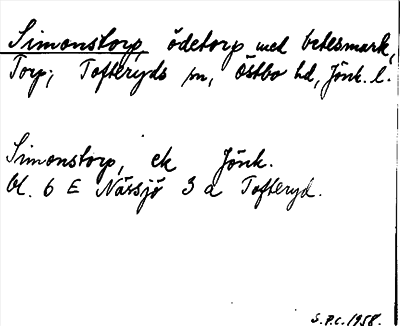 Simonstorp, ödetorp med betesmark,
Torp, Tofteryds sn, Östbo hd, Jönk. l.
Simonstorp, ek Jönk.
bl. 6 E Nässjö 3 a Tofteryd.
S.P.C. 1958.